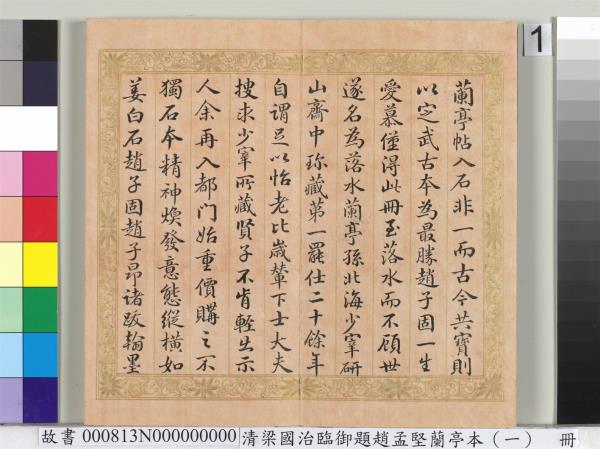 蘭亭帖入石非一而古今共寶則
以定武古本為最勝趙子固一生
愛慕僅得此冊至落水而不顧世
遂名為落水蘭亭孫北海少宰研
山齋中珍藏第一罷仕二十餘年
自謂足以怡老比歲輦下士大夫
搜求少宰所藏賢子不肯輕出示
人余再入都门始重價購之不
獨石本精神煥發意態縱橫如
姜白石趙子固趙子昂诸跋翰墨
1
故書 000813N000000000 清梁國治臨御題趙孟堅蘭亭本（一） 冊